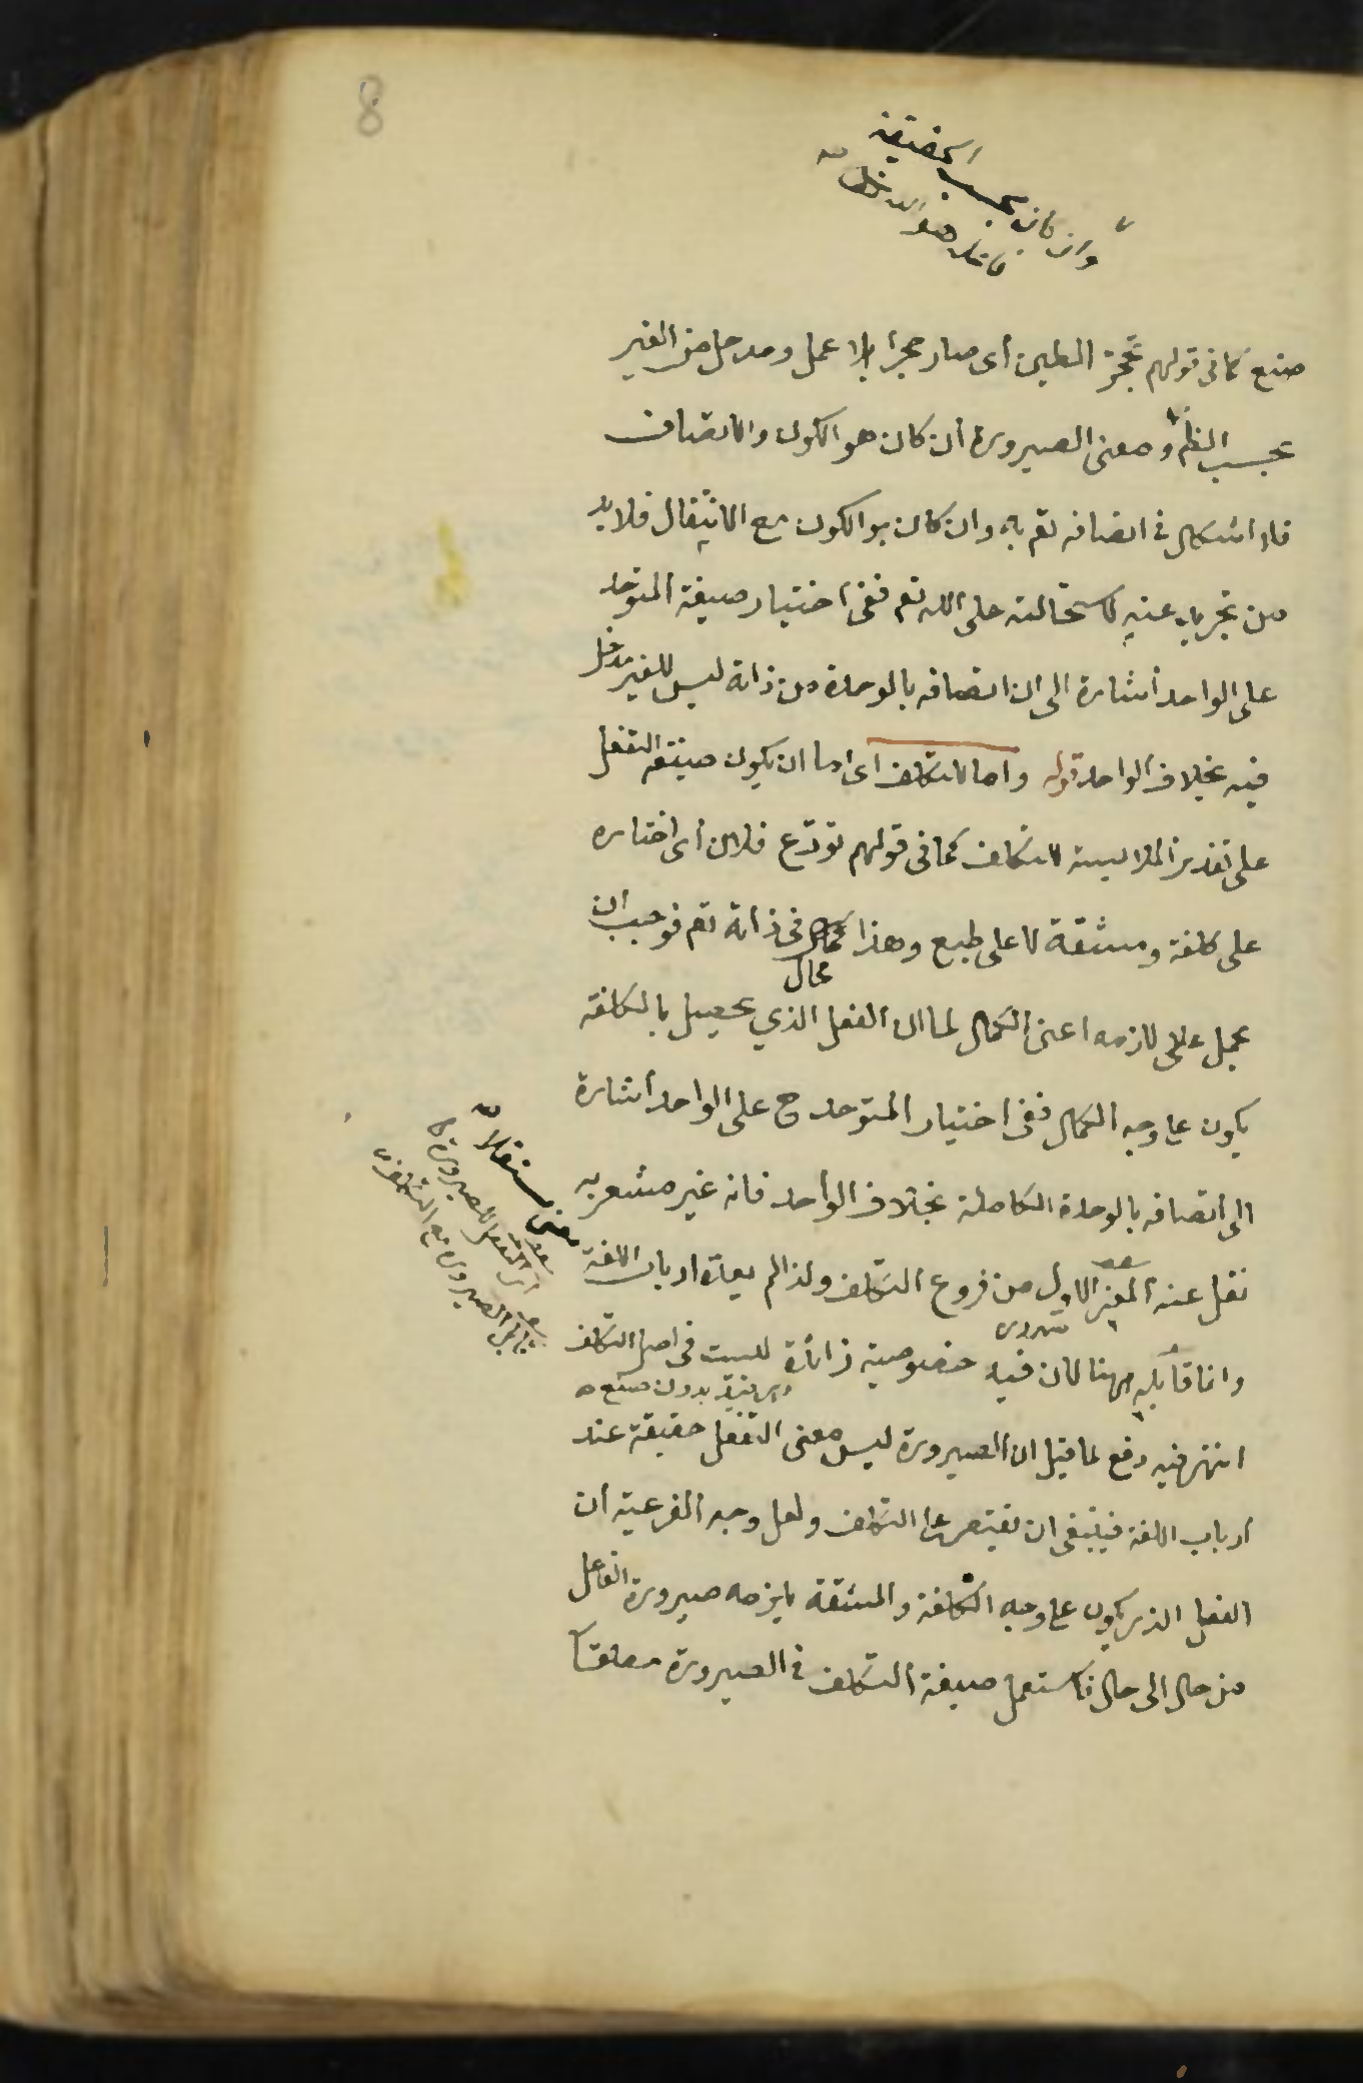 8
وان كان بحسب الحقيقة
فاعله هو الله تعالى
صنع كما في قولهم تحجر الطين أى صار حجرا بلا عمل ومدخل من الغير
بحسب الظ ومعنى الصيرورة أن كان هو الكون والاتصاف
فلا اشكال في اتصافه تعم به وان كان هو الكون مع الانتقال فلا بد
من تجريد عنه لاستحالته على الله تعم ففى اختيار صيغة المتوحد
على الواحد أشارة الى ان اتصافه بالوحدة من ذاته ليس للغير مدخل
فيه بخلاف الواحد قوله واما للتكلف اى اما ان يكون صيغة التفعل
على تقدير الملابسة للتكلف كما في قولهم تورّع فلان أى اختاره
على كلفة ومشقة لا على طبع وهذا محال فى ذاته تعم فوجب ان
محال
يحمل على لازمه اعنى الكمال لما ان الفعل الذي يحصل بالكلفة
يكون على وجه الكمال ففى اختيار المتوحد ح على الواحد أشارة
الى اتصافه بالوحدة الكاملة بخلاف الواحد فانه غير مشعر به
نقل عنه المعنى الاول من فروع التكلف ولذا لم يعدّه ارباب اللغة
معنى مستقلا
وانما قابله ههنا لان فيه خصوصية زائدة ليست فى اصل التكلف
بدون صنع
انتهى فيه دفع لما قيل ان الصيرورة ليس معنى التفعل حقيقة عند
أرباب اللغة فينبغى ان يقتصر على التكلف ولعل وجه الفرعية أن
الفعل الذى يكون على وجه الكلفة والمشقة يلزمه صيرورة الفاعل
من حال الى حال فاستعمل صيغة التكلف في الصيرورة مطلقا